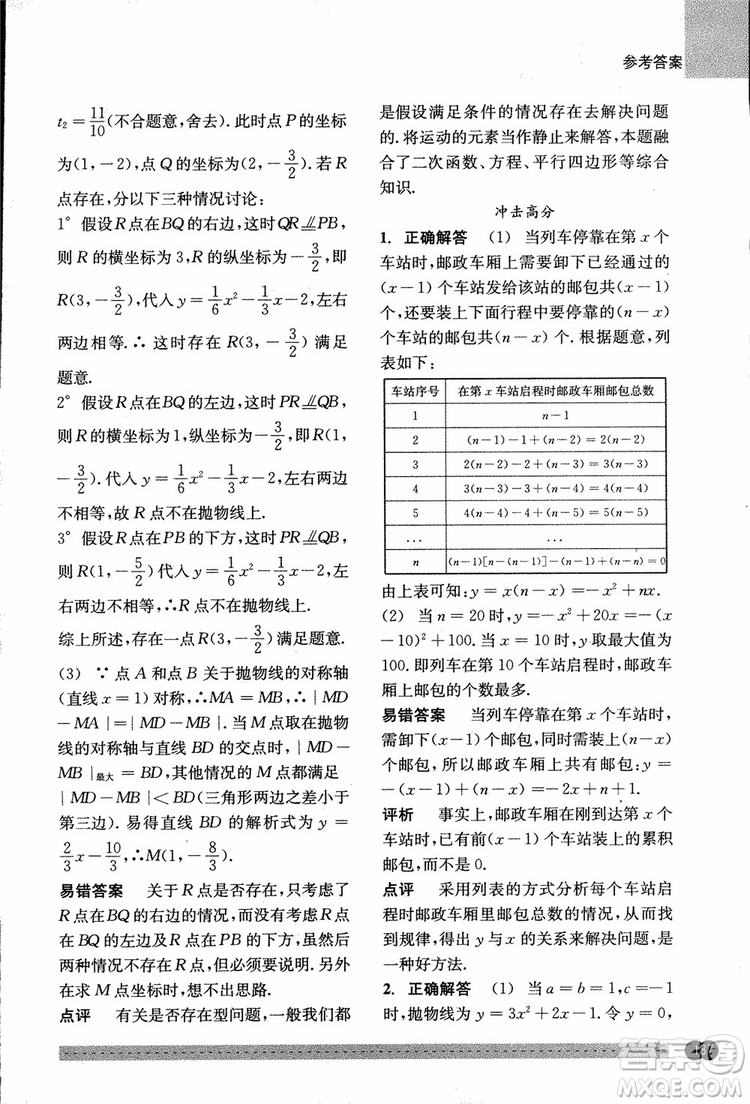 参考答案
t₂ = 11/10 (不合题意,舍去). 此时点 P 的坐标
为(1,－2),点 Q 的坐标为(2,－3/2). 若 R
点存在,分以下三种情况讨论:
1° 假设 R 点在 BQ 的右边,这时 QR ⫽ PB,
则 R 的横坐标为 3,R 的纵坐标为－3/2,即
R(3,－3/2),代入 y = 1/6 x² － 1/3 x － 2,左右
两边相等.∴ 这时存在 R(3,－3/2) 满足
题意.
2° 假设 R 点在 BQ 的左边,这时 PR ⫽ QB,
则 R 的横坐标为 1,纵坐标为－3/2,即 R(1,
－3/2). 代入 y = 1/6 x² － 1/3 x － 2,左右两边
不相等,故 R 点不在抛物线上.
3° 假设 R 点在 PB 的下方,这时 PR ⫽ QB,
则 R(1,－5/2) 代入 y = 1/6 x² － 1/3 x － 2,左
右两边不相等,∴R 点不在抛物线上.
综上所述,存在一点 R(3,－3/2) 满足题意.
(3) ∵ 点 A 和点 B 关于抛物线的对称轴
(直线 x = 1) 对称,∴MA = MB,∴| MD
－MA | = | MD － MB |. 当 M 点取在抛物
线的对称轴与直线 BD 的交点时,| MD －
MB |最大 = BD,其他情况的 M 点都满足
| MD － MB | < BD (三角形两边之差小于
第三边). 易得直线 BD 的解析式为 y =
2/3 x － 10/3,∴M(1,－8/3).
易错答案 关于 R 点是否存在,只求出了
R 点在 BQ 的右边的情况,而没有考虑 R 点
在 BQ 的左边或 R 点在 PB 的下方,虽然后
两种情况不存在 R 点,但需要说明. 另外
在求 M 点坐标时,想不出思路.
点评 有关是否存在型问题,一般我们都
是假设满足条件的情况存在去解决问题
的. 将运动的元素当作静止来解答,本题融
合了二次函数、方程、平行四边形等综合
知识.
冲击高分
1. 正确解答 (1) 当列车停靠在第 x 个
车站时,邮政车厢上需要卸下已经通过的
(x－1) 个车站发给该站的邮包共(x－1)
个,还要装上下面行程中要停靠的(n－x)
个车站的邮包共(n－x) 个. 根据题意,列
表如下:
车站序号 在第 x 车站启程时邮政车厢邮包总数
1 n－1
2 (n－1)－1＋(n－2) = 2(n－2)
3 2(n－2)－2＋(n－3) = 3(n－3)
4 3(n－3)－3＋(n－4) = 4(n－4)
5 4(n－4)－4＋(n－5) = 5(n－5)
… …
n (n－1)[n－(n－1)]－(n－1)＋(n－n) = 0
由上表可知:y = x(n－x) = －x² ＋ nx.
(2) 当 n = 20 时,y = －x² ＋ 20x = －(x
－10)² ＋ 100. 当 x = 10 时,y 取最大值为
100. 即列车在第 10 个车站启程时,邮政车
厢上邮包的个数最多.
易错答案 当列车停靠在第 x 个车站时,
需卸下(x－1) 个邮包,同时需装上(n－x)
个邮包,所以邮政车厢上共有邮包 y =
－(x－1)＋(n－x) = －2x＋n＋1.
评析 事实上,邮政车厢在刚到达第 x 个
车站时,共有前(x－1) 个车站装上的累积
邮包,而不是 0.
点评 采用列表的方式分析每个车站启
程时邮政车厢里邮包总数的情况,从而找
到规律,得出 y 与 x 的关系来解决问题,是
一种好方法.
2. 正确解答 (1) 当 a = b = 1,c =－1
时,抛物线为 y = 3x² ＋ 2x－1. 令 y = 0,
答案圈
MXQE.COM